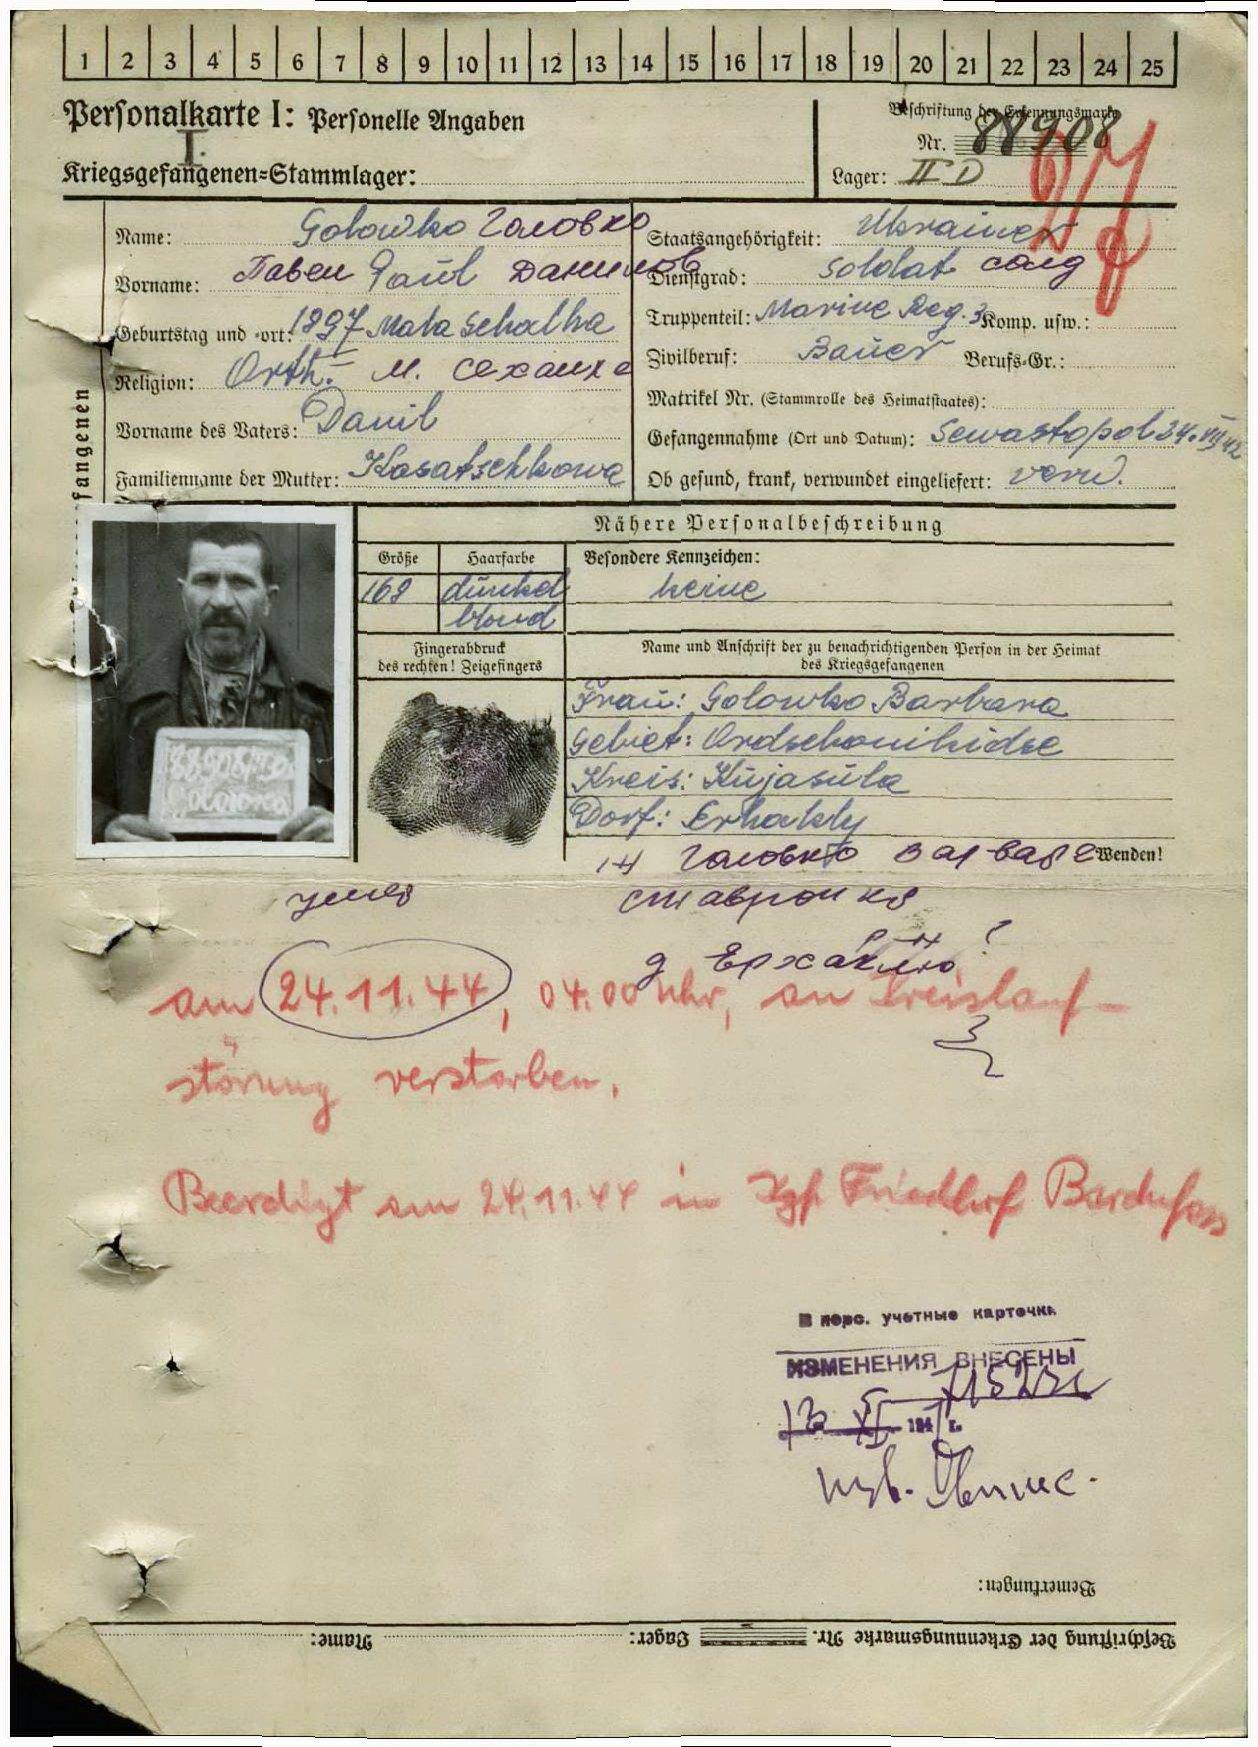 1 2 3 4 5 6 7 8 9 10 11 12 13 14 15 16 17 18 19 20 21 22 23 24 25
Personalkarte I: Personelle Angaben
Beschriftung der Erkennungsmarke
Nr. 88908
I.
Kriegsgefangenen-Stammlager:
Lager: II D
Name: Golowko Головко
Vorname: Павел Paul Данилов
Geburtstag und -ort: 1897 Mala Schalka
Religion: Orth. - М. Сехаихе
Vorname des Vaters: Danil
Familienname der Mutter: Kasatschkowa
Staatsangehörigkeit: Ukrainer
Dienstgrad: Soldat солд
Truppenteil: Marine Reg. 3 Komp. usw.:
Zivilberuf: Bauer Berufs-Gr.:
Matrikel Nr. (Stammrolle des Heimatstaates):
Gefangennahme (Ort und Datum): Sewastopol 24.VII.42
Ob gesund, krank, verwundet eingeliefert: verw.
fangenen
Nähere Personalbeschreibung
Größe Haarfarbe Besondere Kennzeichen:
168 dunkel blond keine
Fingerabdruck des rechten! Zeigefingers
Name und Anschrift der zu benachrichtigenden Person in der Heimat
des Kriegsgefangenen
88908 II D
Golowko
Frau: Golowko Barbara
Gebiet: Ordschonikidse
Kreis: Kujasula
Dorf: Erhakly
Головко Варвара Wenden!
умер
д Ерхаклю
am 24.11.44, 04.00 Uhr, an Kreislauf-
störung verstorben.
Beerdigt am 24.11.44 in Kgf Friedhof Bardufoss
В перс. учетные карточки
ИЗМЕНЕНИЯ ВНЕСЕНЫ
194 г.
Bemerkungen:
Beschriftung der Erkennungsmarke Nr. Lager: Name: